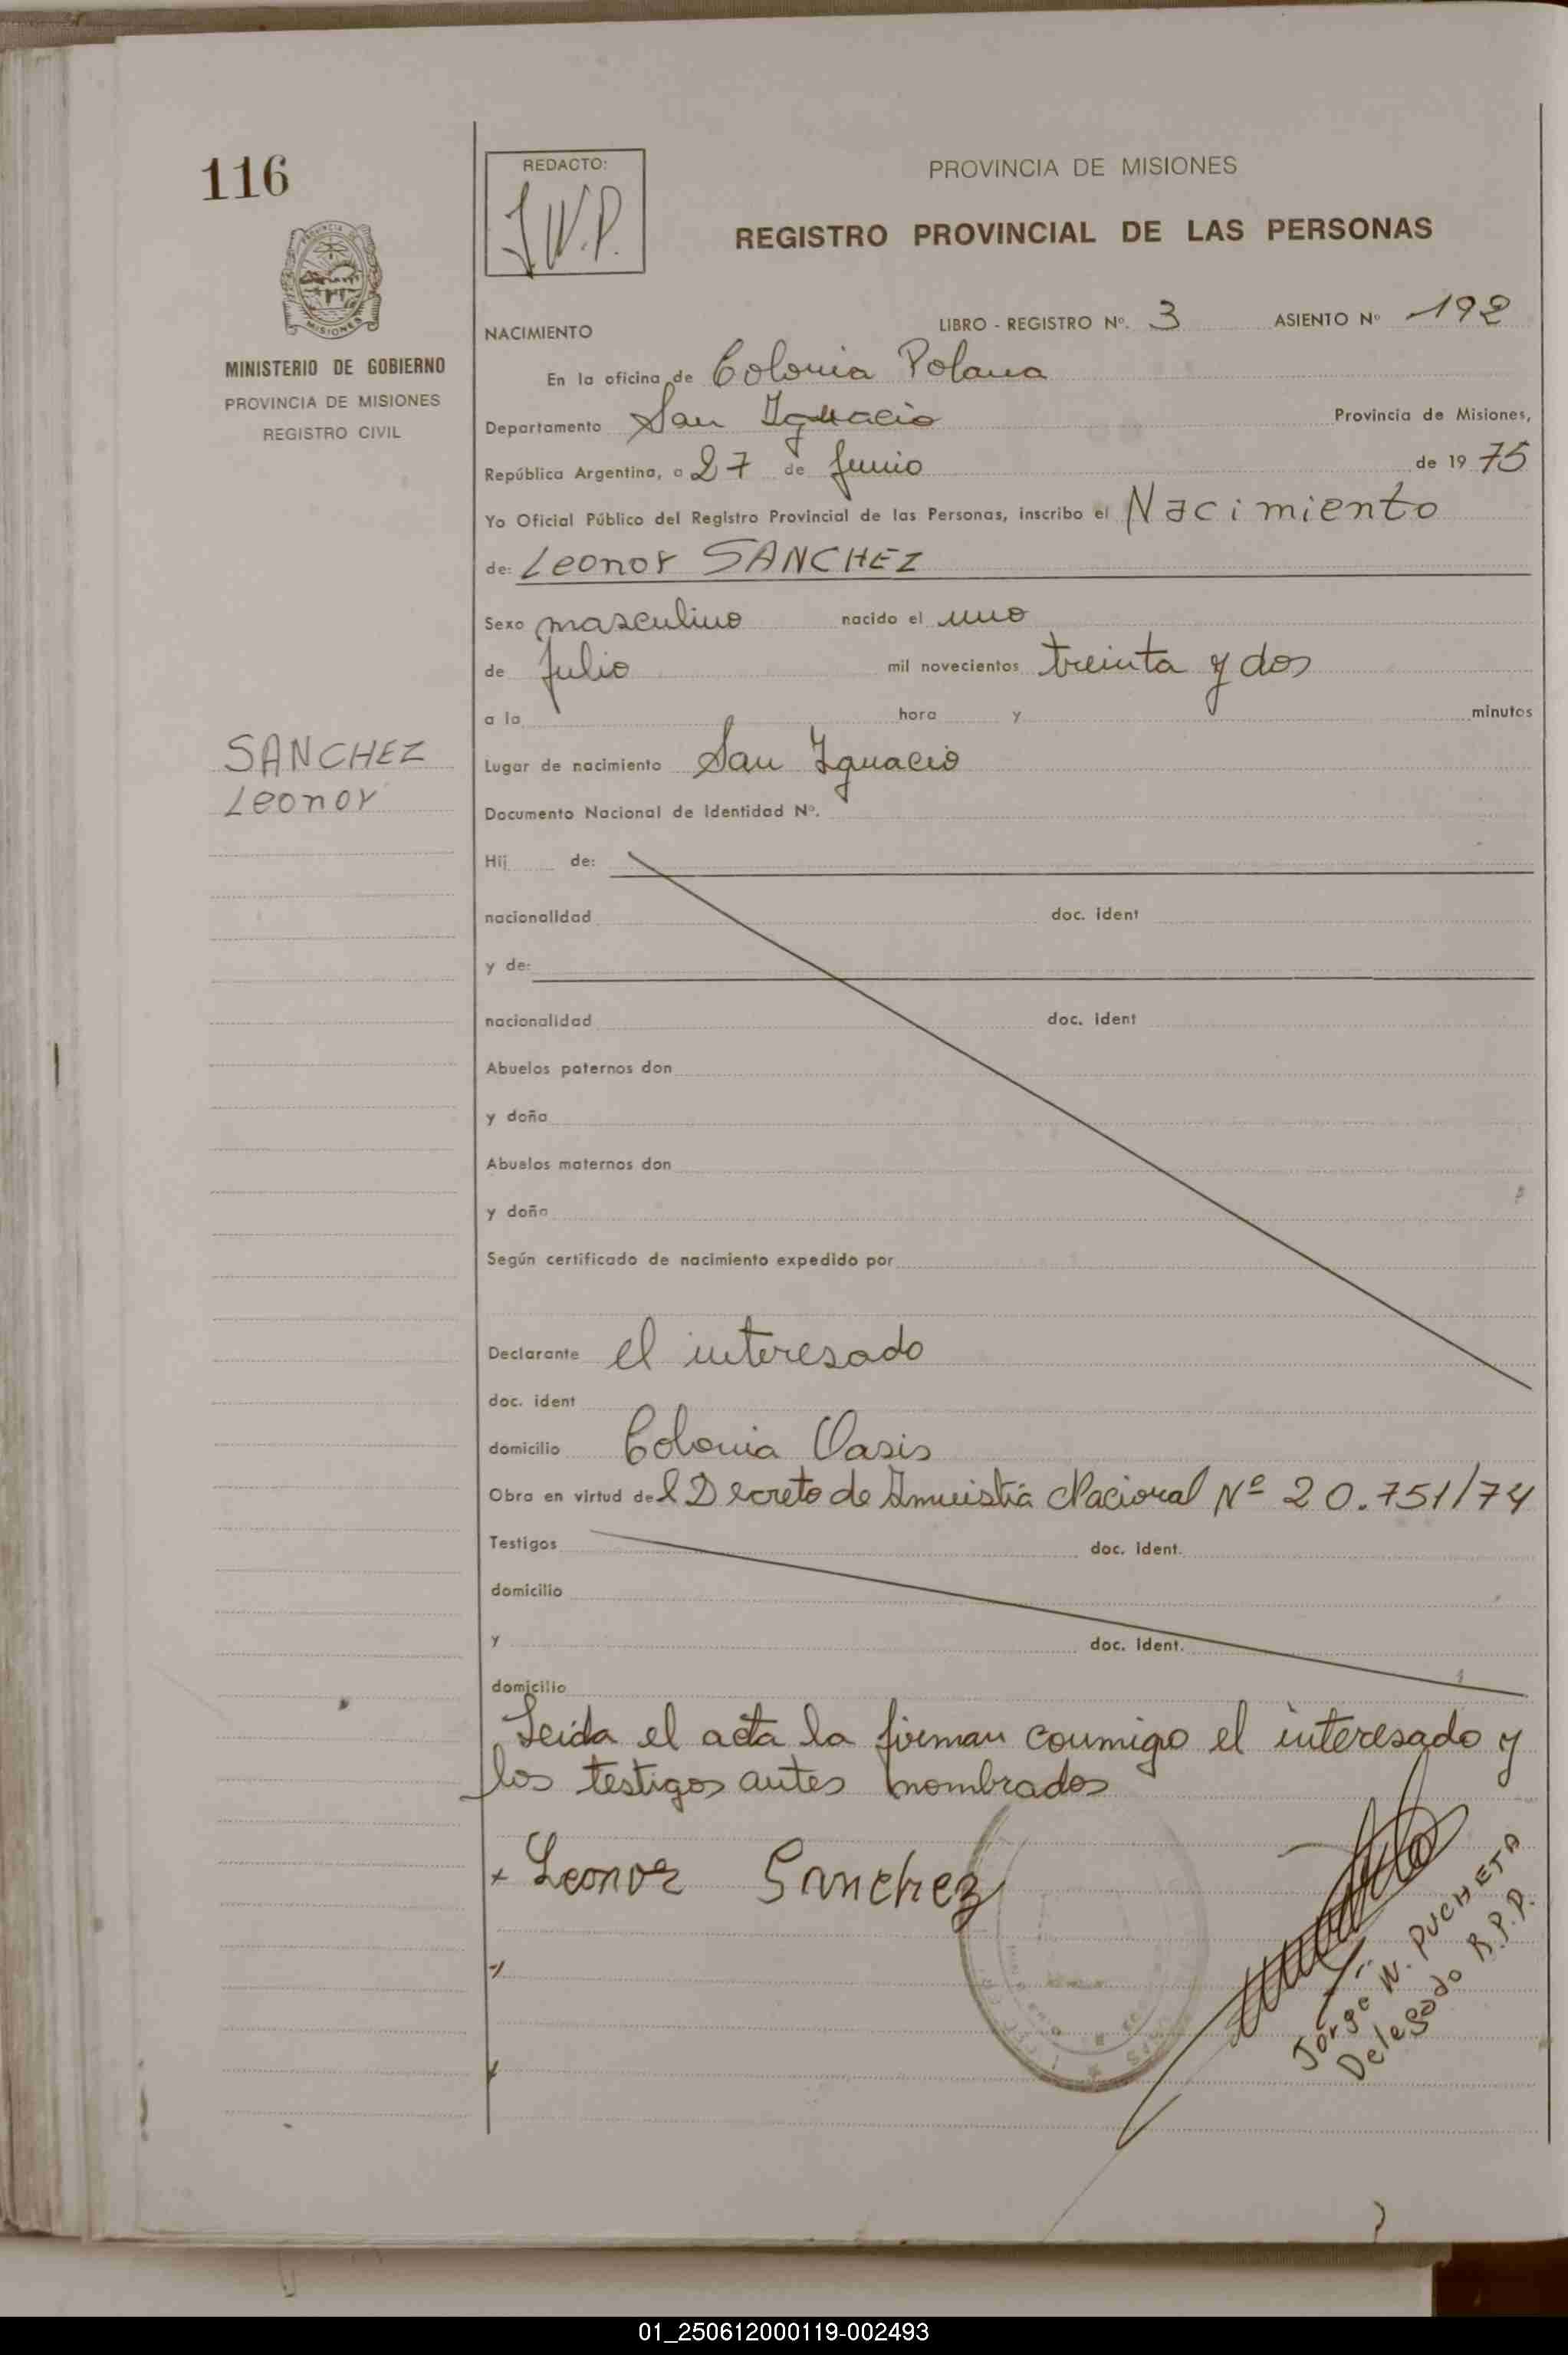 116
REDACTO:
J.W.P.
PROVINCIA DE MISIONES
REGISTRO PROVINCIAL DE LAS PERSONAS
MISIONES
MINISTERIO DE GOBIERNO
PROVINCIA DE MISIONES
REGISTRO CIVIL
NACIMIENTO LIBRO - REGISTRO Nº. 3 ASIENTO Nº 192
En la oficina de Colonia Polana
Departamento San Ignacio Provincia de Misiones,
República Argentina, a 27 de Junio de 1975
Yo Oficial Público del Registro Provincial de las Personas, inscribo el Nacimiento
de: Leonor SANCHEZ
Sexo masculino nacido el uno
de Julio mil novecientos treinta y dos
a la hora y minutos
SANCHEZ
Leonor
Lugar de nacimiento San Ignacio
Documento Nacional de Identidad Nº.
Hij de:
nacionalidad doc. ident
y de:
nacionalidad doc. ident
Abuelos paternos don
y doña
Abuelos maternos don
y doña
Según certificado de nacimiento expedido por
Declarante el interesado
doc. ident
domicilio Colonia Oasis
Obra en virtud del Decreto de Amnistía Nacional Nº 20.751/74
Testigos doc. ident.
domicilio
y doc. ident.
domicilio
Leida el acta la firman conmigo el interesado y
los testigos antes nombrados
x Leonor Sanchez
Jorge W. PUCHETA
Delegado R.P.P.
01_250612000119-002493